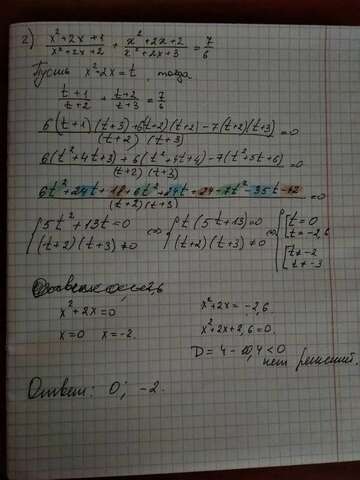 2) (x²+2x+1)/(x²+2x+2) + (x²+2x+2)/(x²+2x+3) = 7/6
Пусть x²+2x=t, тогда
(t+1)/(t+2) + (t+2)/(t+3) = 7/6
(6(t+1)(t+3)+6(t+2)(t+2)-7(t+2)(t+3))/((t+2)(t+3)) =0
(6(t²+4t+3)+6(t²+4t+4)-7(t²+5t+6))/((t+2)(t+3)) =0
(6t²+24t+18+6t²+24t+24-7t²-35t-42)/((t+2)(t+3)) =0
{ 5t²+13t=0 ∞ { t(5t+13)=0 ∞ { [ t=0
(t+2)(t+3)≠0 (t+2)(t+3)≠0 t=-2,6
[ t≠-2
t≠-3
x²+2x=0 x²+2x=-2,6
x=0 x=-2. x²+2x+2,6=0.
D=4-10,4<0
нет решений.
Ответ: 0; -2.